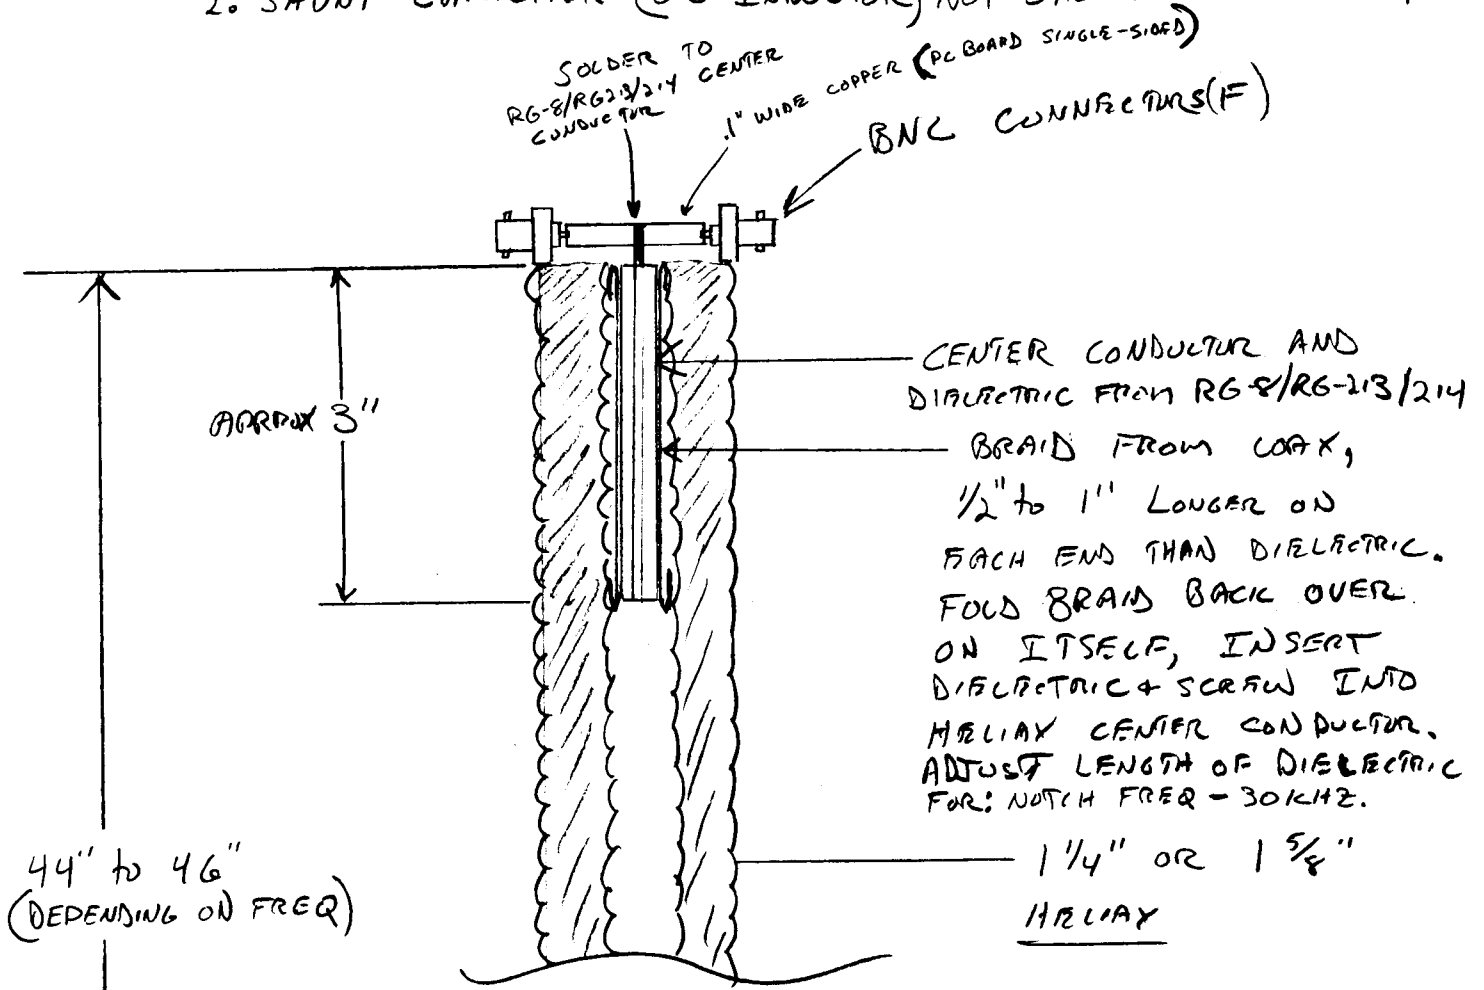 2. SHUNT (OR INDUCTOR) NOT
SOLDER TO
RG-8/RG213/214 CENTER
CONDUCTOR
.1" WIDE COPPER (PC BOARD SINGLE-SIDED)
BNC CONNECTORS(F)
APPROX 3"
CENTER CONDUCTOR AND
DIELECTRIC FROM RG-8/RG-213/214
BRAID FROM COAX,
1/2" to 1" LONGER ON
EACH END THAN DIELECTRIC.
FOLD BRAID BACK OVER
ON ITSELF, INSERT
DIELECTRIC & SCREW INTO
HELIAX CENTER CONDUCTOR.
ADJUST LENGTH OF DIELECTRIC
FOR: NOTCH FREQ - 30KHZ.
44" to 46"
(DEPENDING ON FREQ)
1 1/4" OR 1 5/8"
HELIAX